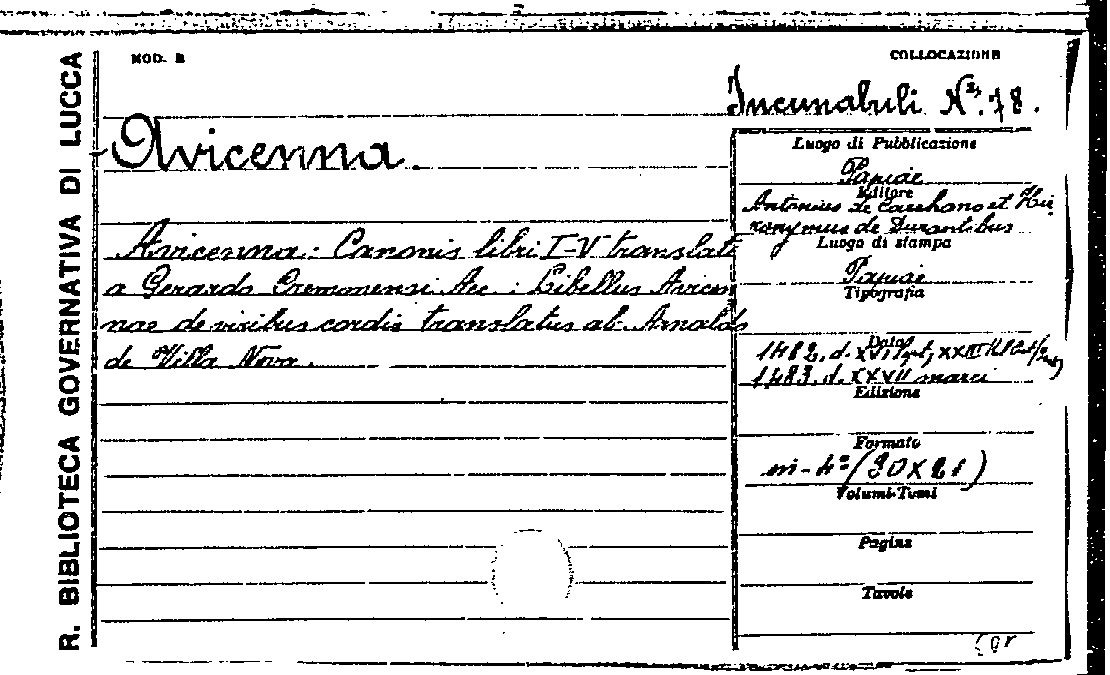 R. BIBLIOTECA GOVERNATIVA DI LUCCA
MOD. B
COLLOCAZIONE
Incunabuli N. 78.
Avicenna.
Luogo di Pubblicazione
Papiae
Editore
Antonius de Carchano et Hie
ronymus de Durantibus
Luogo di stampa
Papiae
Tipografia
Avicenna: Canonis libri I-V translati
a Gerardo Cremonensi Acc.: Libellus Avicen
nae de viribus cordis translatus ab Arnaldo
de Villa Nova.
Data
1482, d. XVI
1483, d. XXVII marci
Edizione
Formato
in-4º (30X21)
Volumi-Tomi
Pagine
Tavole
Cor